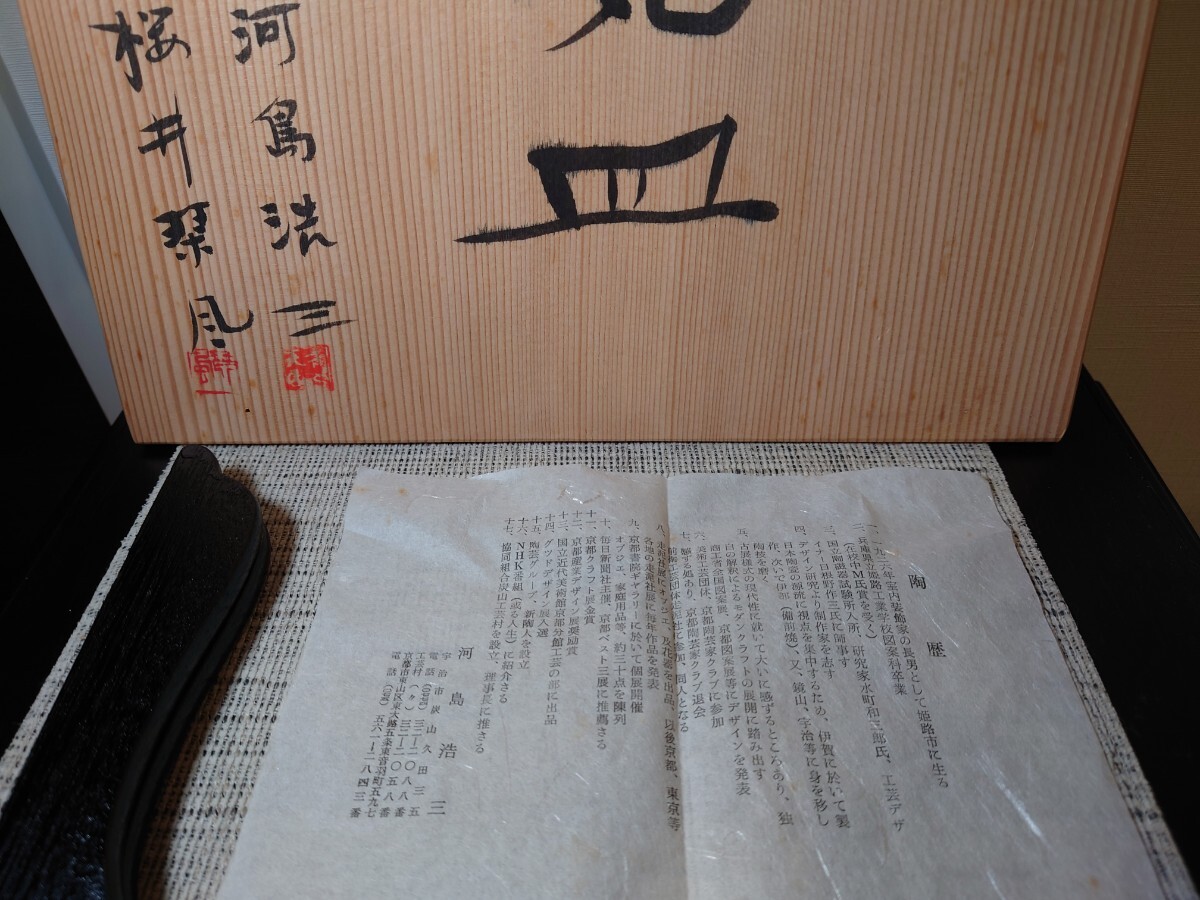 皿
河島浩三
桜井琴風
陶歴
一、一九二六年室内装飾家の長男として姫路市に生る
二、兵庫県立姫路工業学校図案科卒業
(在校中M氏賞を受く)
三、国立陶磁器試験所入所、研究家水町和三郎氏、工芸デザ
イナー日根野作三氏に師事す
四、デザイン研究より制作家を志す
日本陶瓷の源流に視点を集中するため、伊賀に於いて製
作、次いで伊部(備前焼)、又、鏡山、宇治等に身を移し
陶技を磨く
五、古展様式の現代性に就いて大いに感ずるところあり、独
自の解釈によるモダンクラフトの展開に踏み出す
商工省全国図案展、京都図案展等にデザインを発表
六、美術工芸団体、京都陶芸家クラブに参加
七、願する処あり、京都陶芸家クラブ退会
前衛工芸団体走泥社に参加、同人となる
八、走泥社展にオブジェ、及花器を出品、以後京都、東京等
各地の走泥社展に毎年作品を発表
九、京都書院ギャラリーに於いて個展開催
オブジェ、家庭用品等、約三十点を陳列
十、毎日新聞社主催、京都ベスト三展に推薦さる
十一、京都クラフト展金賞
十二、京都産業デザイン展奨励賞
十三、国立近代美術館京都分館工芸の部に出品
十四、グッドデザイン展入選
十五、陶芸グループ、新陶人を設立
十六、NHK番組(或る人生)に紹介さる
十七、協同組合炭山工芸村を設立、理事長に推さる
河島浩三
宇治市炭山久田三五
電話(0774)三二―二〇八八番
工芸村(〃)三二―二〇五八番
京都市東山区東大路五条東音羽町五九七
電話(075)五六一―二八四三番